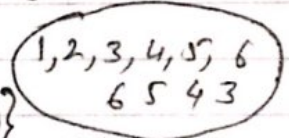 1, 2, 3, 4, 5, 6
6 5 4 3
}